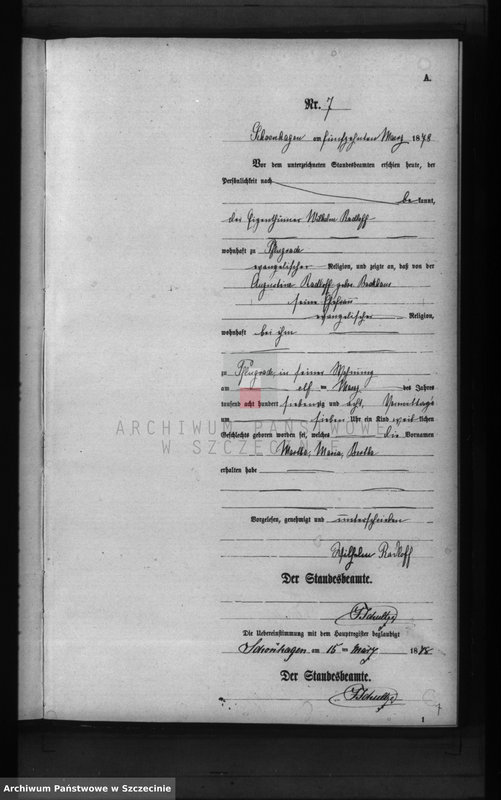 A.
Nr. 7
Schoenhagen am fünfzehnten März 1878
Vor dem unterzeichneten Standesbeamten erschien heute, der
Persönlichkeit nach
be kannt,
der Eigenthümer Wilhelm Radloff
wohnhaft zu Pflugrade
evangelischer Religion, und zeigte an, daß von der
Radloff
seine Ehefrau
evangelischer Religion,
wohnhaft bei ihm
zu Pflugrade, in seiner Wohnung
am elf ten März des Jahres
tausend acht hundert siebenzig und acht, Vormittags
um sieben Uhr ein Kind weib lichen
Geschlechts geboren worden sei, welches die Vornamen
Martha, Maria, Bertha
erhalten habe
Vorgelesen, genehmigt und unterschrieben
Wilhelm Radloff
Der Standesbeamte.
Die Uebereinstimmung mit dem Hauptregister beglaubigt
Schönhagen am 15 ten März 1878
Der Standesbeamte.
1
ARCHIWUM PAŃSTWOWE
W SZCZECINIE
Archiwum Państwowe w Szczecinie